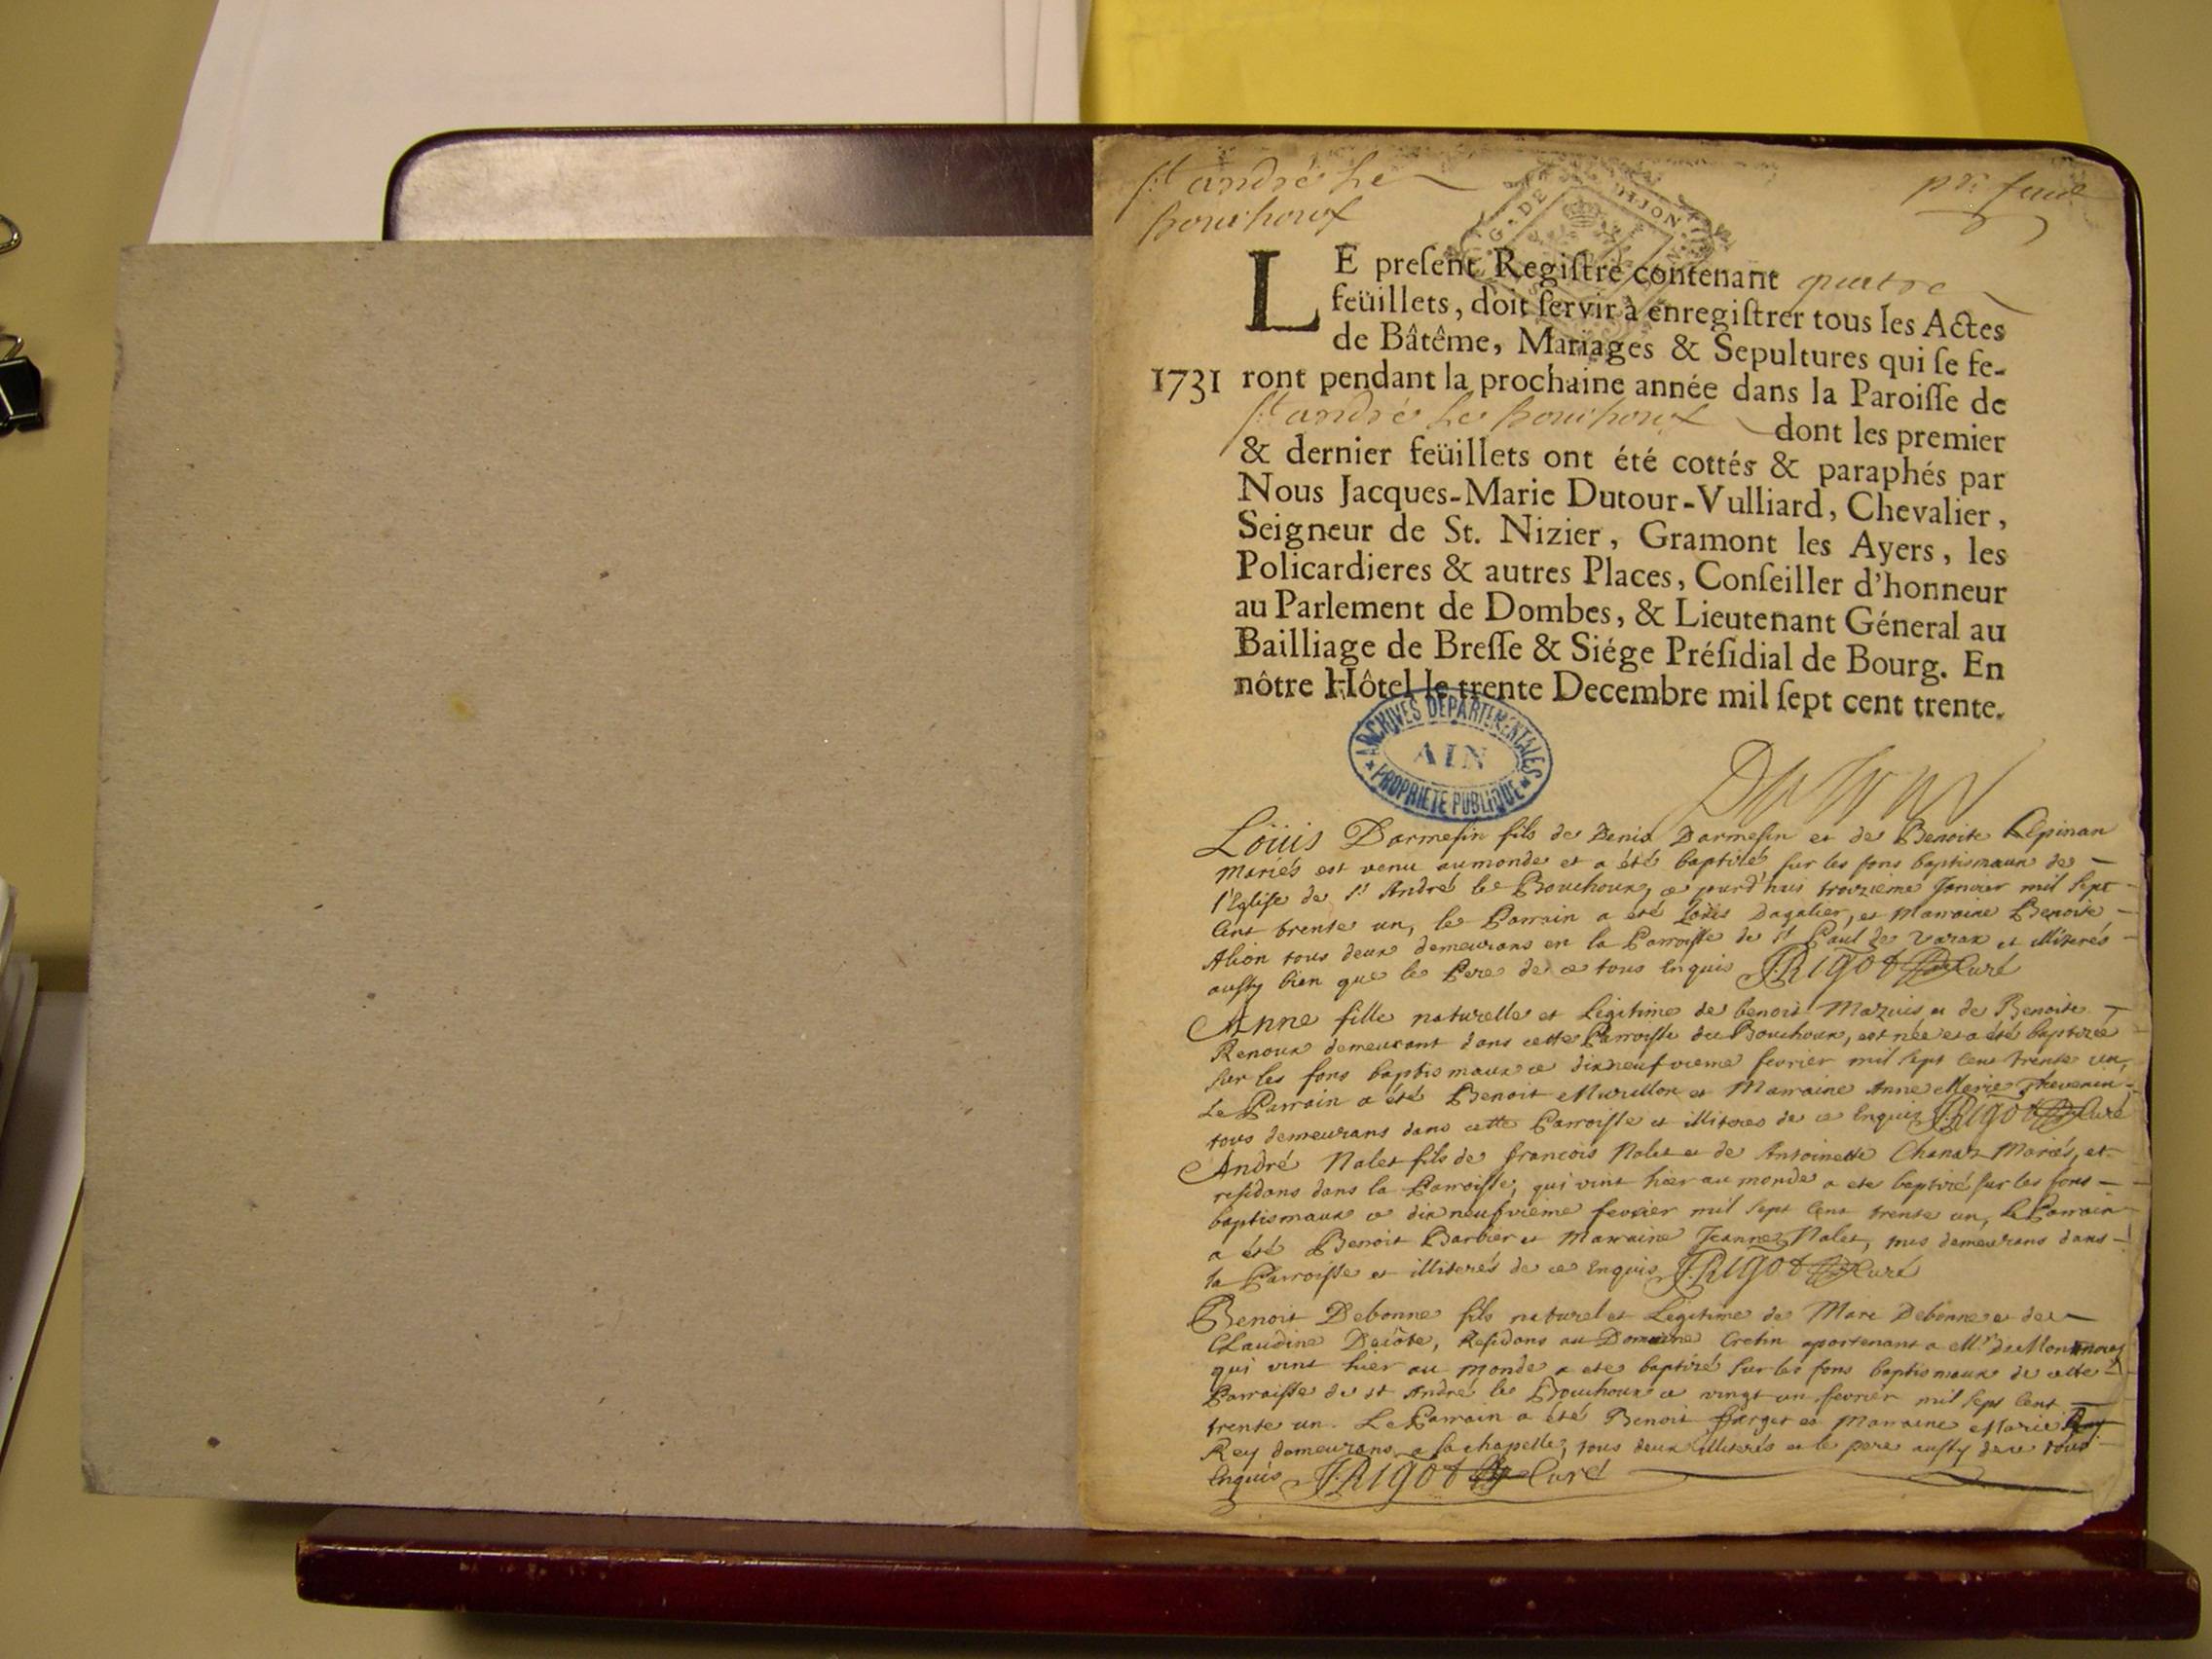 St andré le
bouchoux
pr. feuil
G. DE DIJON
LE preſent Regiſtre contenant quatre
feüillets, doit ſervir à enregiſtrer tous les Actes
de Bâtême, Mariages & Sepultures qui ſe fe-
1731 ront pendant la prochaine année dans la Paroiſſe de
St andré le bouchoux dont les premier
& dernier feüillets ont été cottés & paraphés par
Nous Jacques-Marie Dutour-Vulliard, Chevalier,
Seigneur de St. Nizier, Gramont les Ayers, les
Policardieres & autres Places, Conſeiller d'honneur
au Parlement de Dombes, & Lieutenant Géneral au
Bailliage de Breſſe & Siége Préſidial de Bourg. En
nôtre Hôtel le trente Decembre mil ſept cent trente.
ARCHIVES DÉPARTEMENTALES
AIN
PROPRIÉTÉ PUBLIQUE
Dutour
Loüis Darmesin fils de Denis Darmesin et de Benoite Lepinan
Mariés est venu au monde et a été baptizé sur les fons baptismaux de
l'Eglise de St André le Bouchoux, ce jourd'huis troizieme Janvier mil sept
Cent trente un, le Parrain a été Loüis Dagalier, et Marraine Benoite
Alion tous deux demeurans en la Parroisse de St Paul de Varax et illiterés
aussy bien que le Pere de ce tous Enquis J. Rigot Curé
Anne fille naturelle et Légitime de benoit Mazuis et de Benoite
Renoux demeurant dans cette Parroisse du Bouchoux, est née et a été baptizée
sur les fons baptismaux ce dixneufvieme fevrier mil sept cens trente un,
Le Parrain a été Benoit Murillon et Marraine Anne Marie Thevenin
tous demeurans dans cette Parroisse et illiteres de ce Enquis J. Rigot Curé
André Nalet fils de francois Nalet et de Antoinette Chanas Mariés, et
residans dans la Parroisse, qui vint hier au monde a ete baptizé sur les fons
baptismaux ce dixneufvieme fevrier mil sept Cens trente un, Le Parrain
a été Benoit Barbier et Marraine Jeanne Nalet, tous demeurans dans
la Parroisse et illiterés de ce Enquis J. Rigot Curé
Benoit Debonne fils naturel et Légitime de Marc Debonne et de
Claudine Decôte, Residans au Domaine Cretin apartenant a Mr
qui vint hier au monde a ete baptizé sur les fons baptismaux de cette
Parroisse de st André le Bouchoux ce vingt un fevrier mil sept Cens
trente un. Le Parrain a été Benoit farget et Marraine Marie
Rey demeurans a la chapelle, tous deux illiterés et le pere aussy de ce tous
Enquis J. Rigot Curé